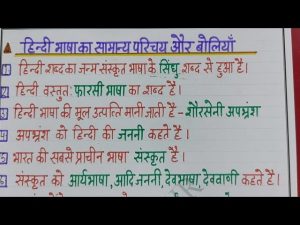 हिन्दी भाषा का सामान्य परिचय और बोलियाँ
1 हिन्दी शब्द का जन्म संस्कृत भाषा के सिंधु शब्द से हुआ है।
2 हिन्दी वस्तुतः फारसी भाषा का शब्द है।
3 हिन्दी भाषा की मूल उत्पत्ति मानी जाती है - शौरसेनी अपभ्रंश
4 अपभ्रंश को हिन्दी की जननी कहते है।
5 भारत की सबसे प्राचीन भाषा संस्कृत है।
6 संस्कृत को आर्यभाषा, आदि जननी, देवभाषा, देववाणी कहते है।